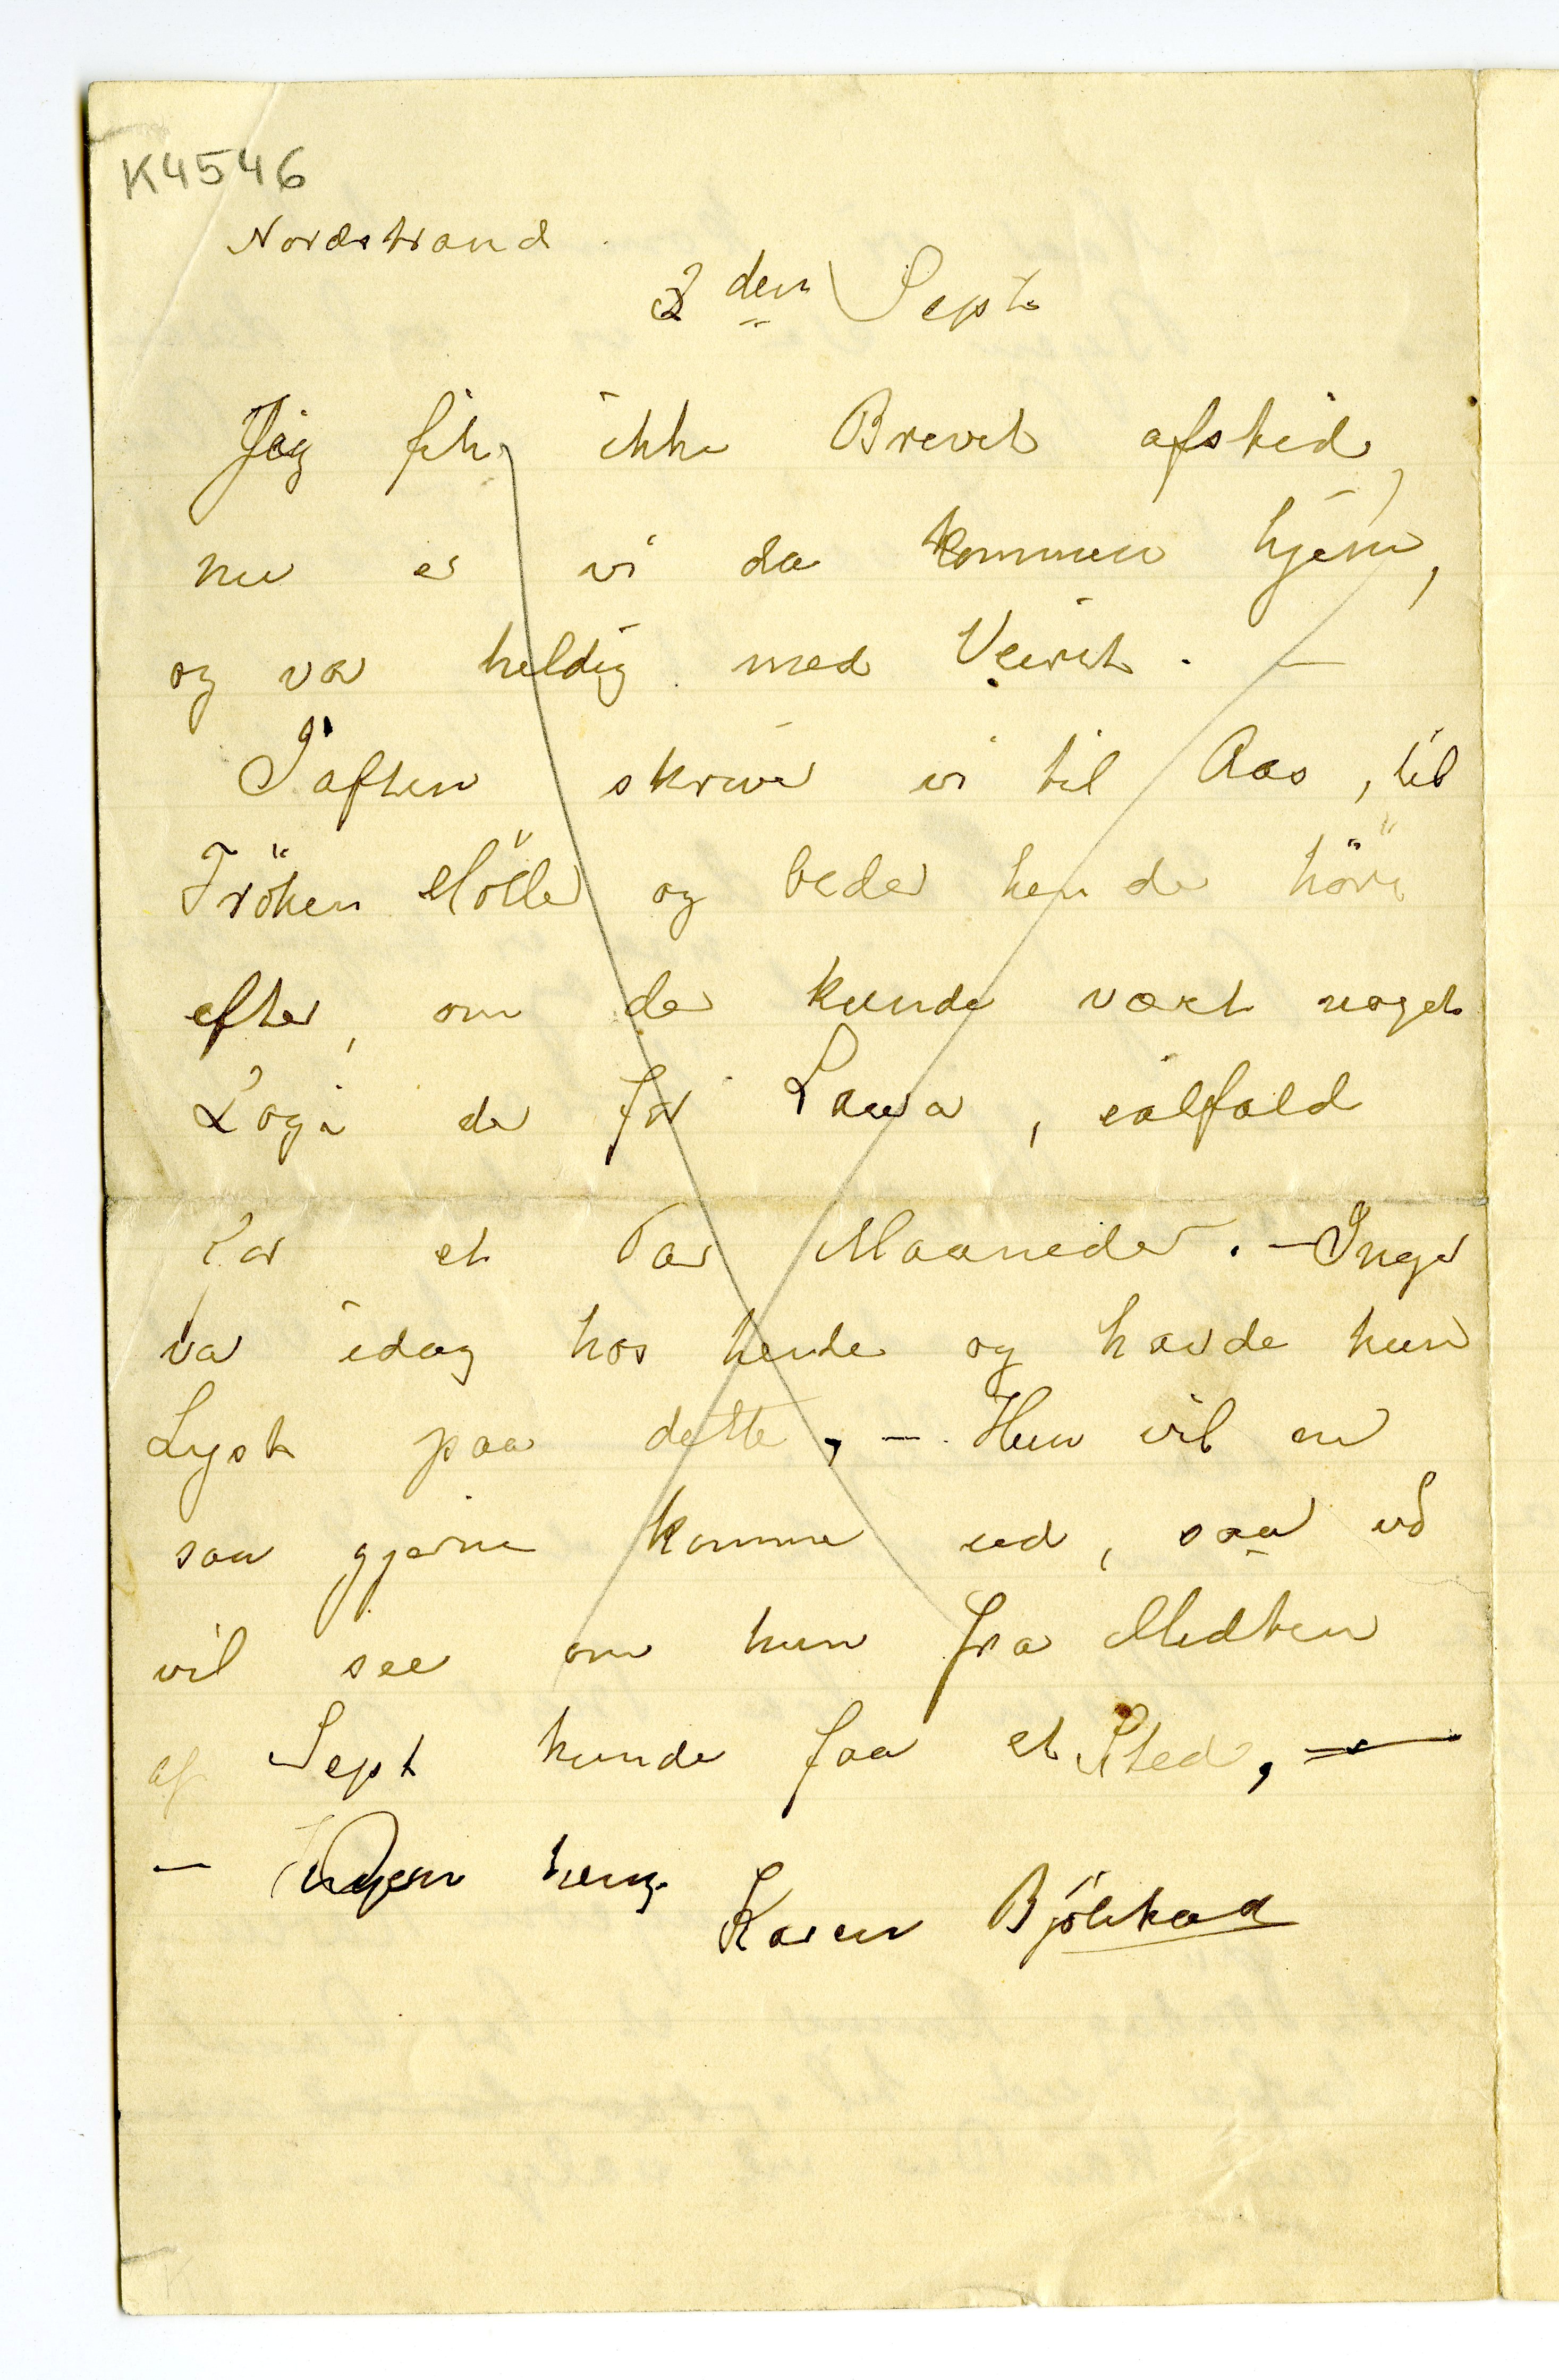 K4546
Nordstrand
2den Sept
Jeg fik ikke Brevet afsted,
nu er vi da kommen hjem,
og var heldig med Veiret. —
Iaften skriver vi til Aas, til
Fröken Möller og beder hende höre
efter, om der kunde vært noget
Logi der for Laura, ialfald
for et Par Maaneder. — Inger
var idag hos hende og havde hun
Lyst paa dette, — Hun vil en
saa gjerne komme ud, saa vi
vil see om hun fra Midten
af Sept kunde faa et Sted, —
—
Karen Bjölstad